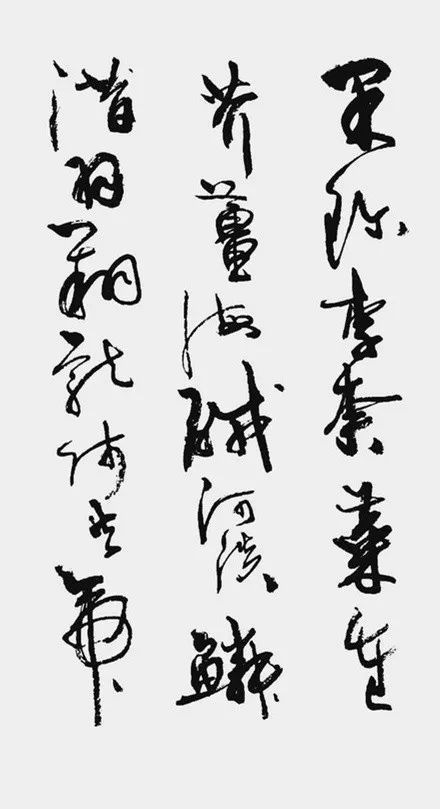 果珍李柰菜重
芥薑海鹹河淡鱗
潜羽翔龍師火帝